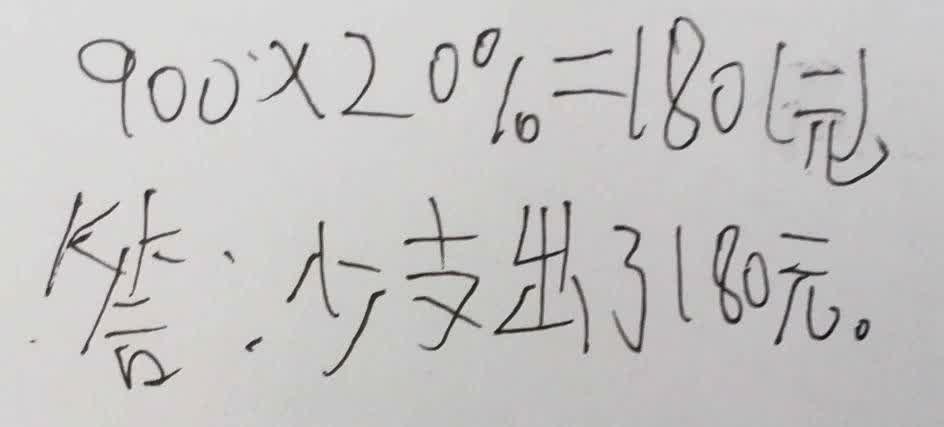 900×20%=180(元)
答:少支出了180元。